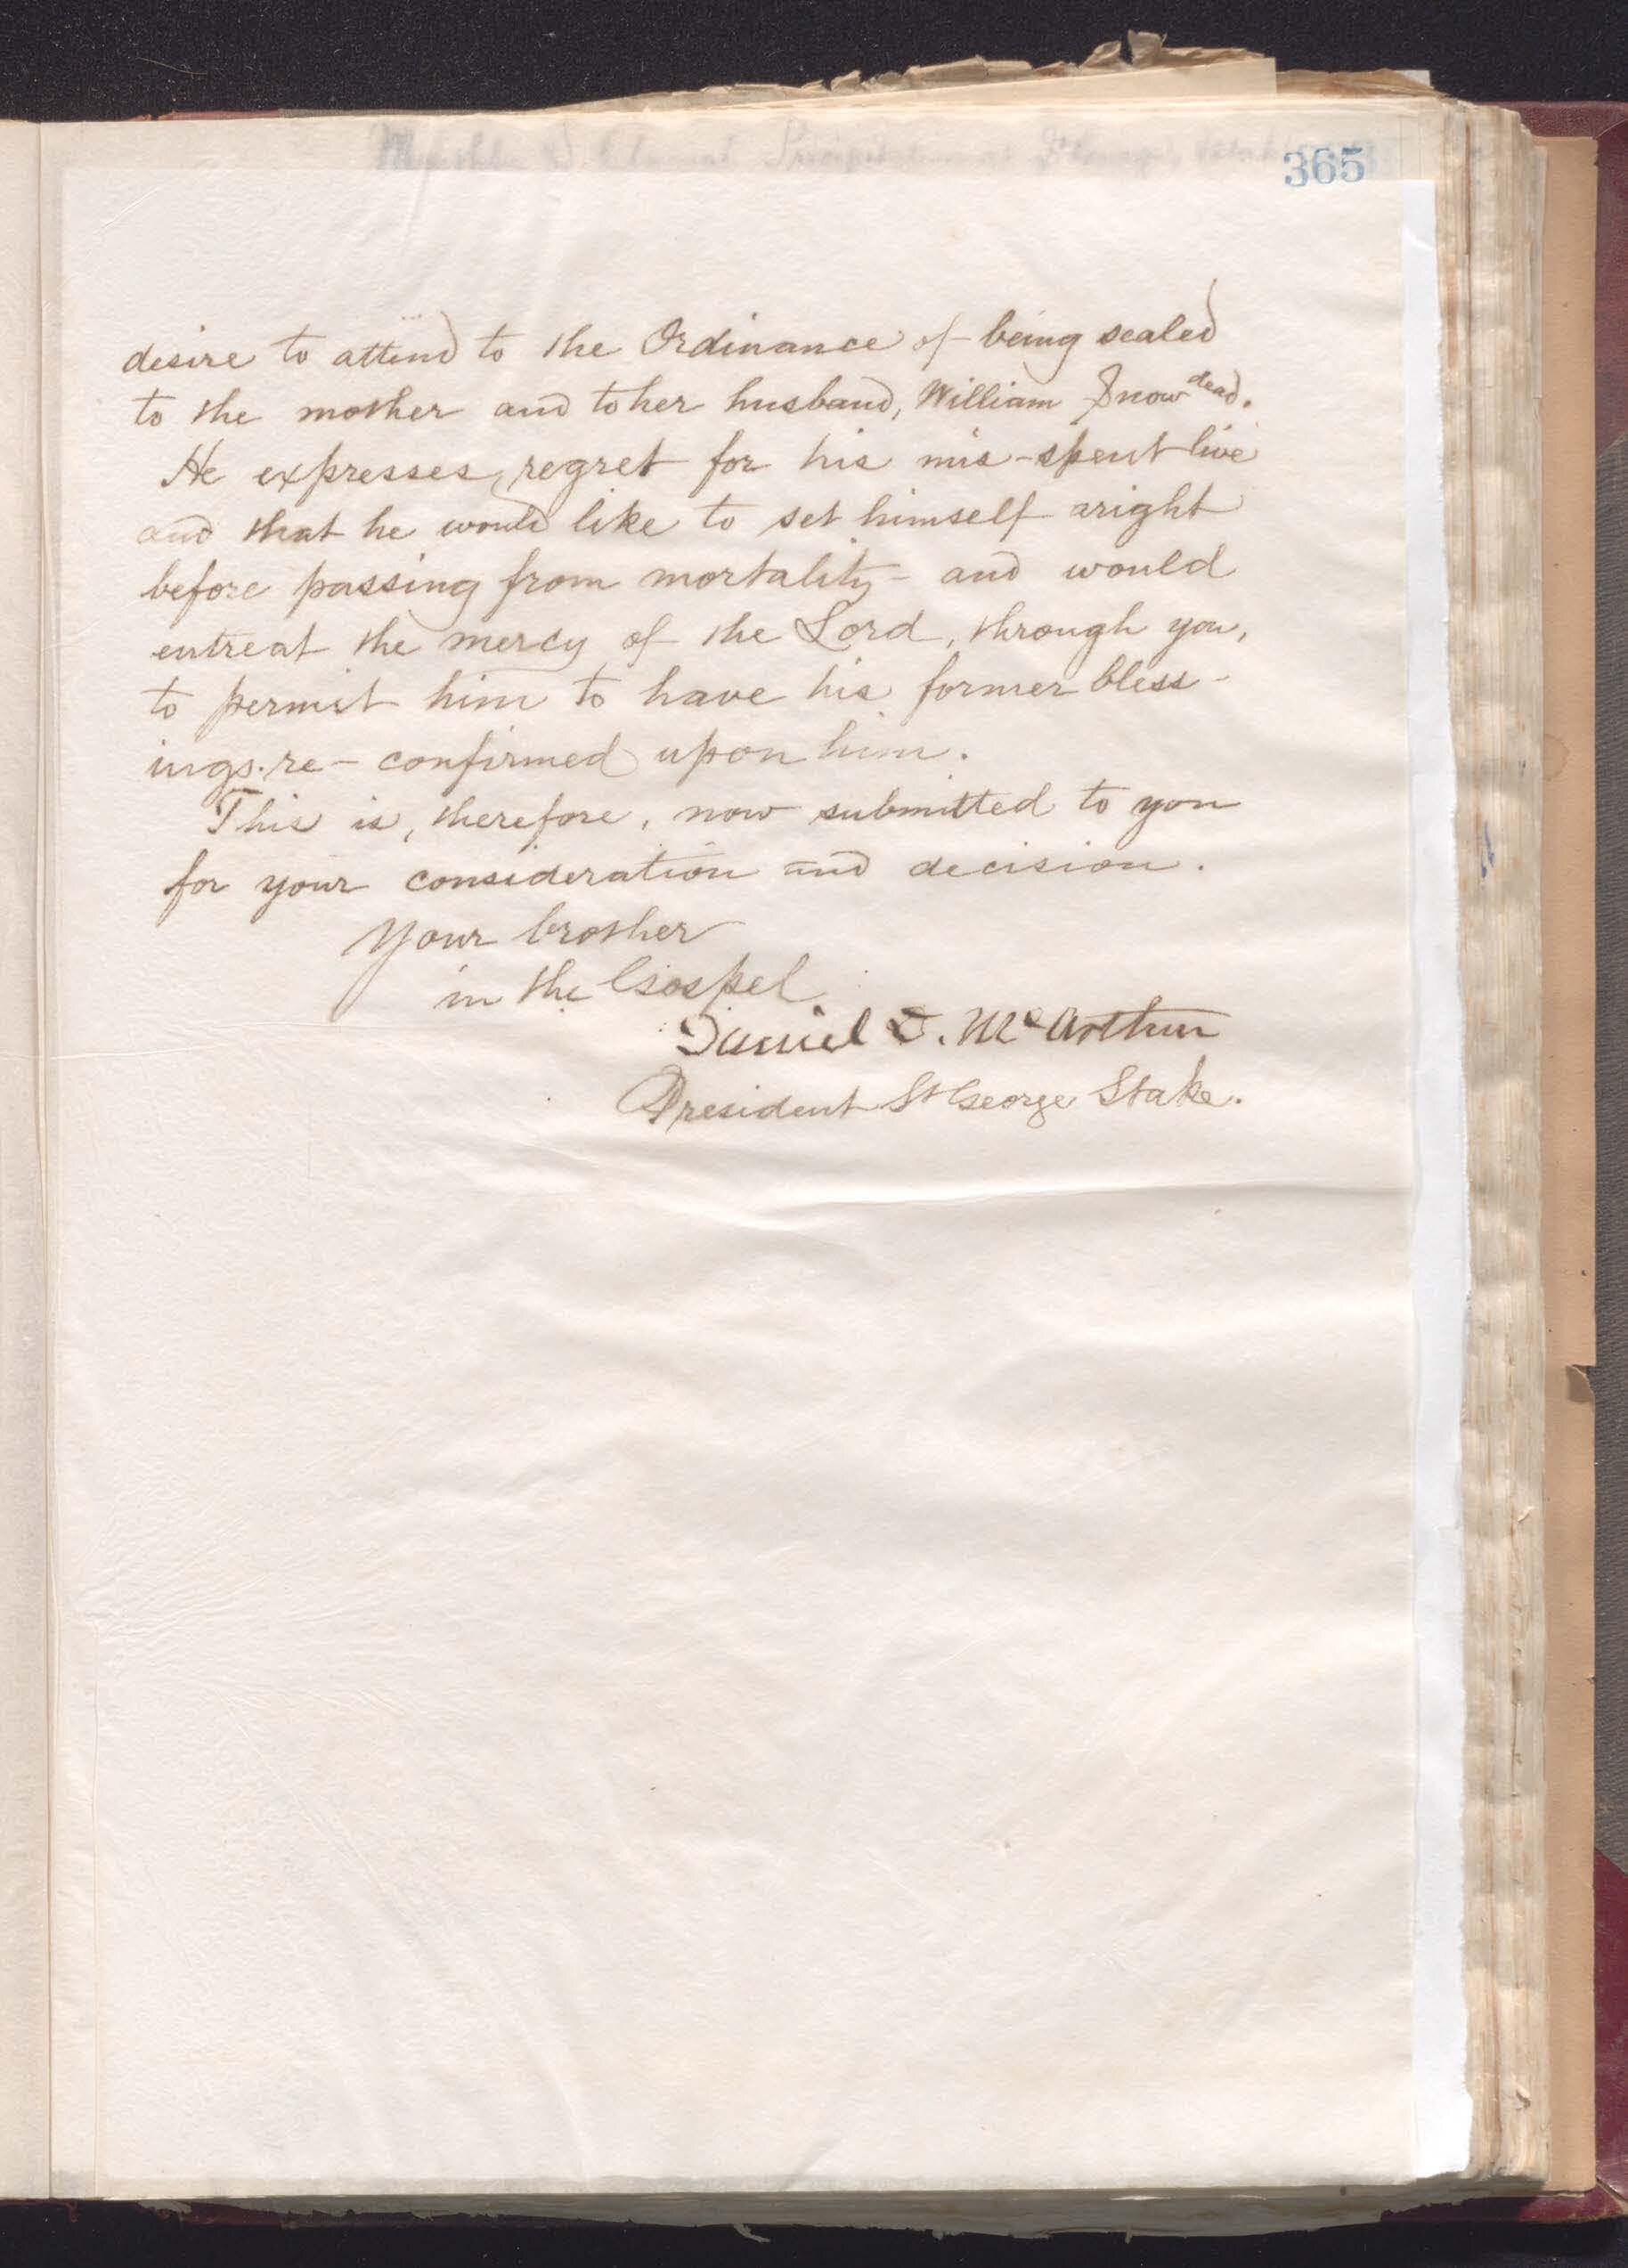 365
desire to attend to the Ordinance of being sealed
to the mother and to her husband, William Snow dead.
He expresses, regret for his mis-spent live
and that he would like to set himself aright
before passing from mortality - and would
entreat the mercy of the Lord, through you,
to permit him to have his former bless-
ings. re-confirmed upon him.
This is, therefore, now submitted to you
for your consideration and decision.
Your brother
in the Gospel
Daniel D. McArthur
President St George Stake.